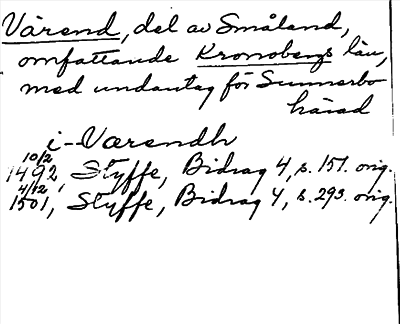 Värend, del av Småland,
omfattande Kronobergs län,
med undantag för Sunnerbo
härad
i Værendh
10/2
1492, Styffe, Bidrag 4, s. 151. orig.
4/12
1501, Styffe, Bidrag 4, s. 293. orig.